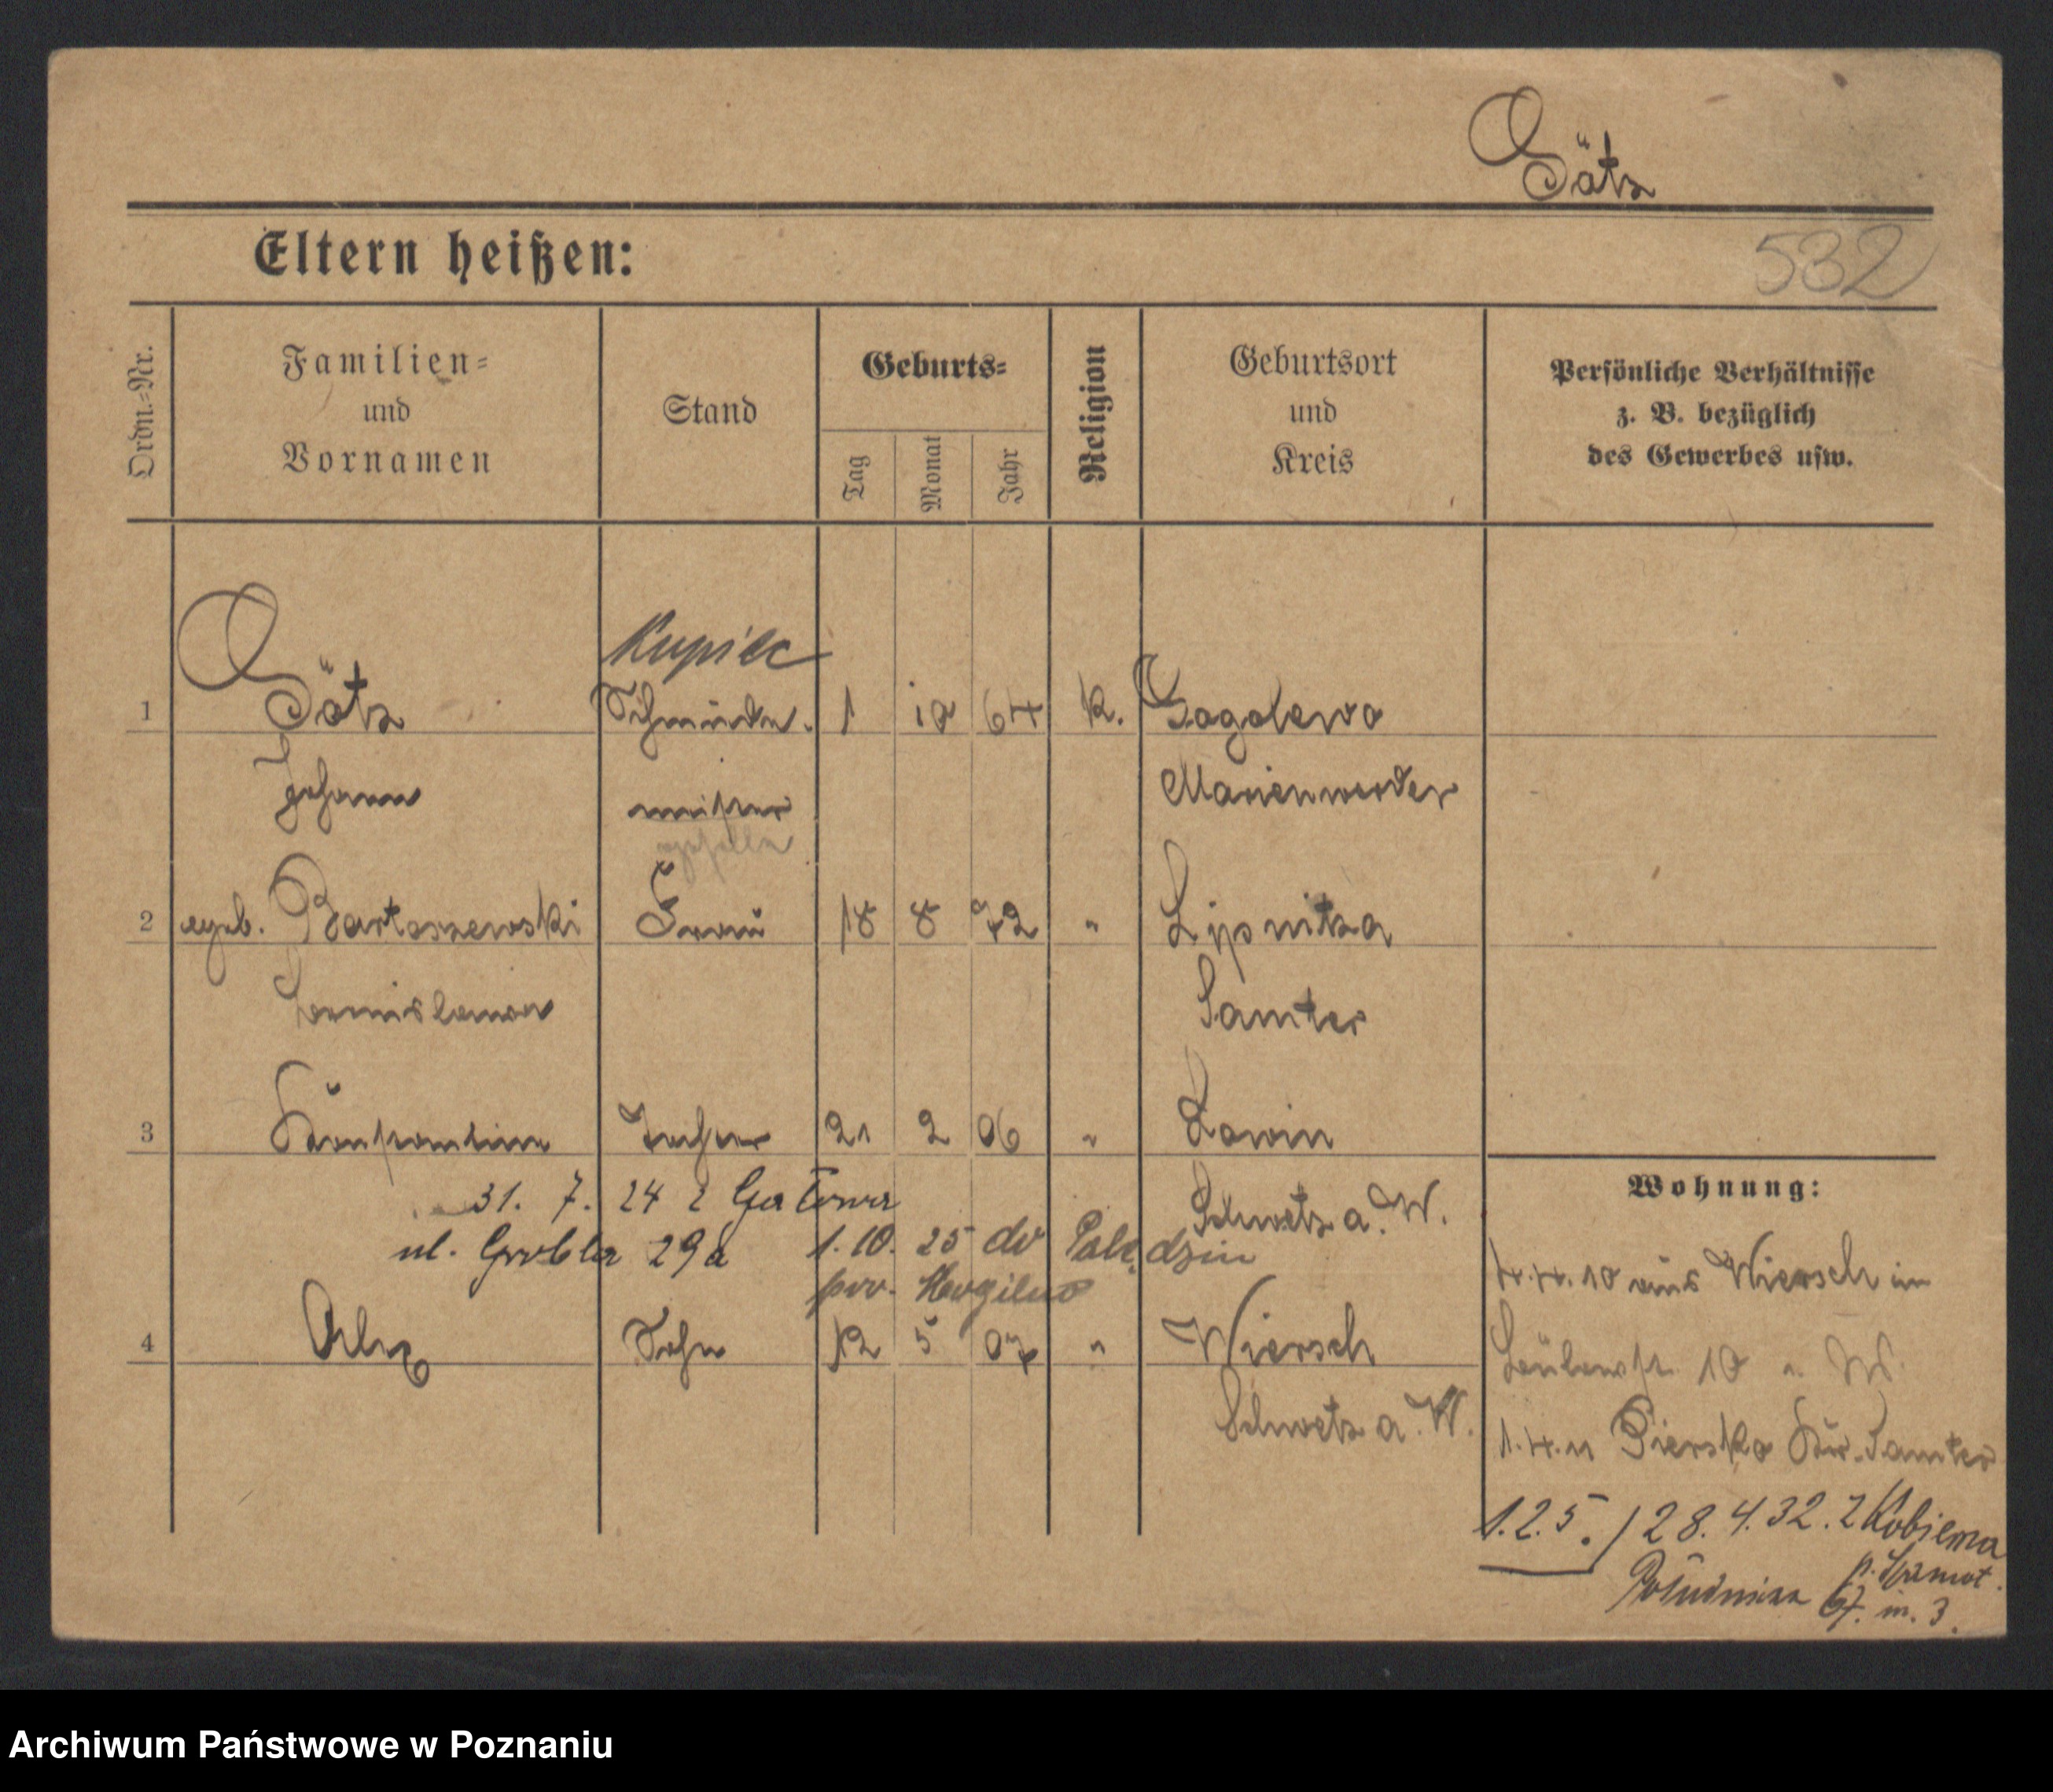 Götz
532
Eltern heißen:
Ordn.-Nr.
Familien-
und
Vornamen
Stand
Geburts-
Tag
Monat
Jahr
Religion
Geburtsort
und
Kreis
Persönliche Verhältnisse
z. B. bezüglich
des Gewerbes usw.
Kupiec
1 Götz Schmiede- 1 10 64 k. Gogolewo
Johann meister Marienwerder
geselle
2 geb. Bartoszewski Frau 18 8 72 " Lipnitza
Samter
3 Konstantine Tochter 21 2 06 " Lowin
31. 7. 24 z
Schwetz a. W.
ul. Grobla 29a 1.10. 25 do Palędzin
pow. Mogilno
4 Sohn 12 5 07 " Wiersch
Schwetz a. W.
Wohnung:
4.4.10 aus Wiersch in
10
1.4.11 Piersko Kr. Samter
1.2.5. / 28.4.32. z Kobierna
p. Szamot.
Południowa 67. m. 3.
Archiwum Państwowe w Poznaniu